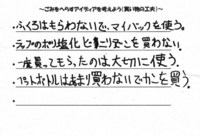 ～ごみをへらすアイディアを考えよう(買い物の工夫)～
・ふくろはもらわないで、マイバックを使う。
・ラップのポリ塩化ビニリデンを買わない。
・一度買ってもらったのは大切に使う。
・ペットボトルはあまり買わないでかんを買う。